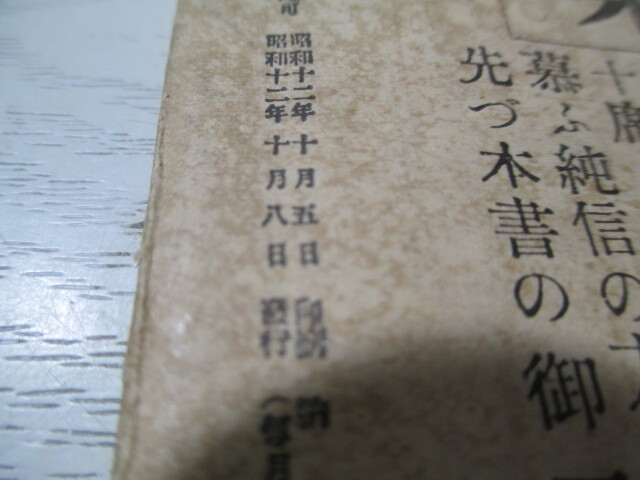 慕ふ純信の
先づ本書の御
昭和十二年十月五日印刷納
昭和十二年十月八日發行（每月